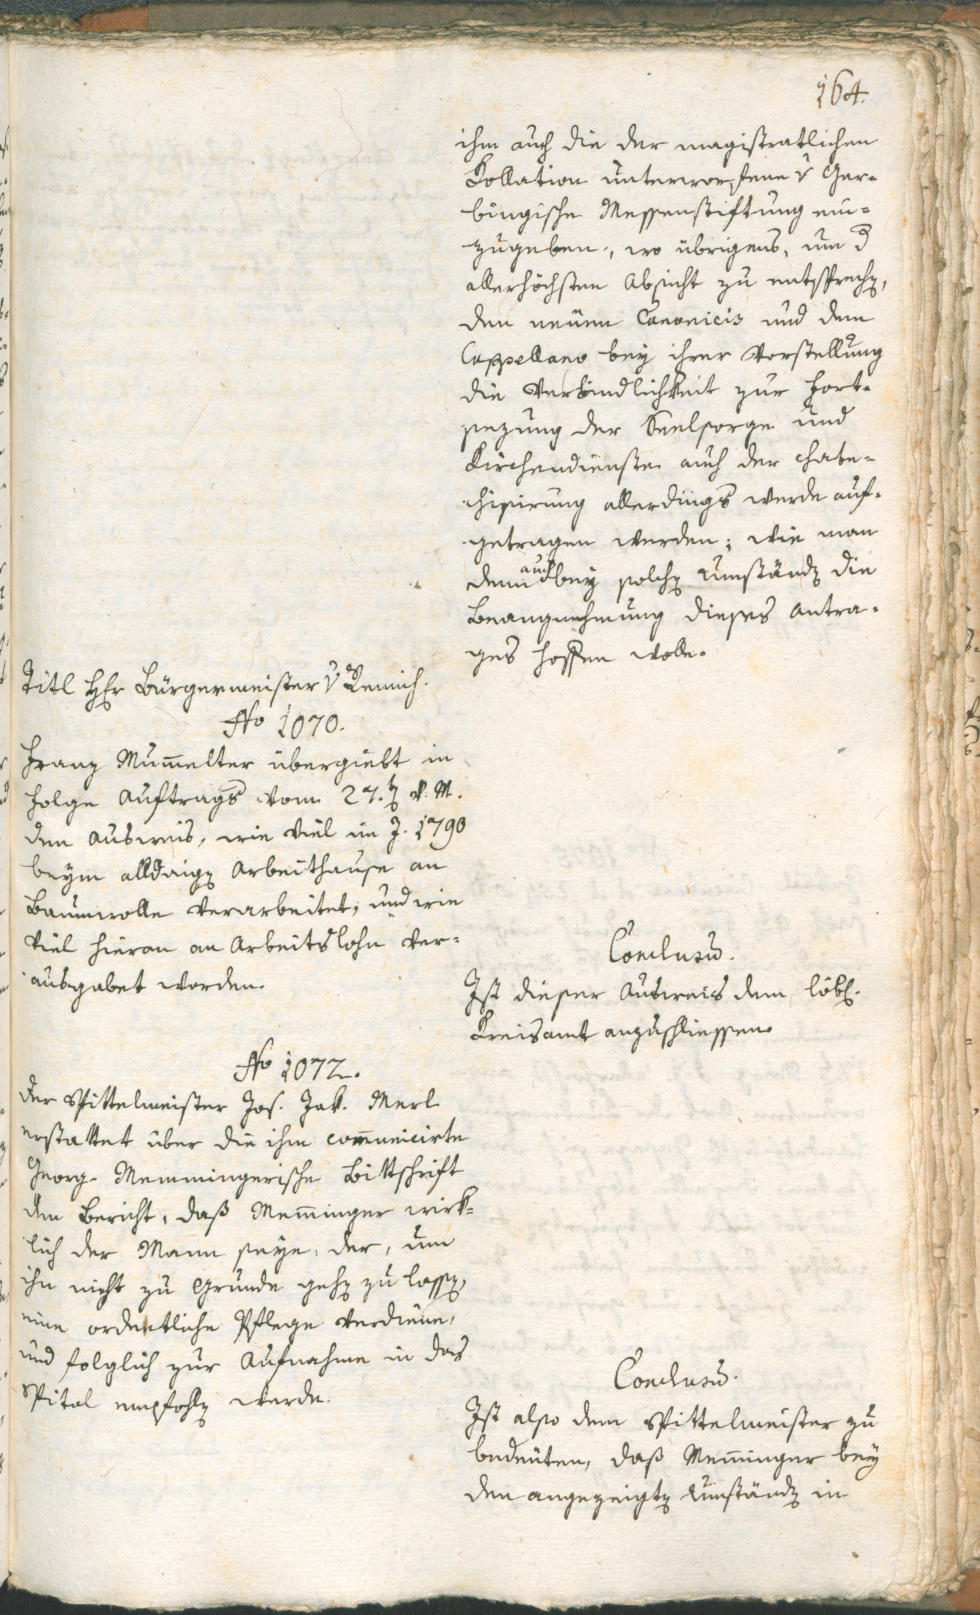 164.
ihm auch die der magistratlichen
Kollation unterworfene v Ger-
bingische Messenstiftung ein-
zugeben, wo übrigens, um d
allerhöchsten Absicht zu entsprechen,
den neuen Canonicis und dem
Cappellano bey ihrer Vorstellung
die Verbindlichkeit zur Fort-
sezung der Seelsorge und
Kirchendienste auch der chate-
chisirung allerdings werde auf-
getragen werden; wie man
denn auch bey solchen Umständen die
Beangnehmung dieses Antra-
ges hoffen wolle.
Titl Hr Bürgermeister v Remich.
No 1070.
Franz Mum̄elter übergiebt in
Folge Auftrags vom 27.t v. M.
den Ausweis, wie viel im J. 1790
beym alldaigen Arbeithause an
Baumwolle verarbeitet, und wie
viel hieran an Arbeitslohn ver-
ausgabet worden.
Conclusū.
Ist dieser Ausweis dem löbl.
Kreisamt anzuschliessen.
No 1072.
Der Spittelmeister Jos. Jak. Merl
erstattet über die ihm com̄unicirte
Georg Memmingerische Bittschrift
den Bericht, daß Mem̄inger wirk-
lich der Mann seye, der, um
ihn nicht zu Grunde gehen zu lassen,
eine ordentliche Pflege verdiene,
und folglich zur Aufnahme in das
Spital empfohlen werde.
Conclusū.
Ist also dem Spittelmeister zu
bedeuten, daß Mem̄inger bey
den angezeigten Umständen in